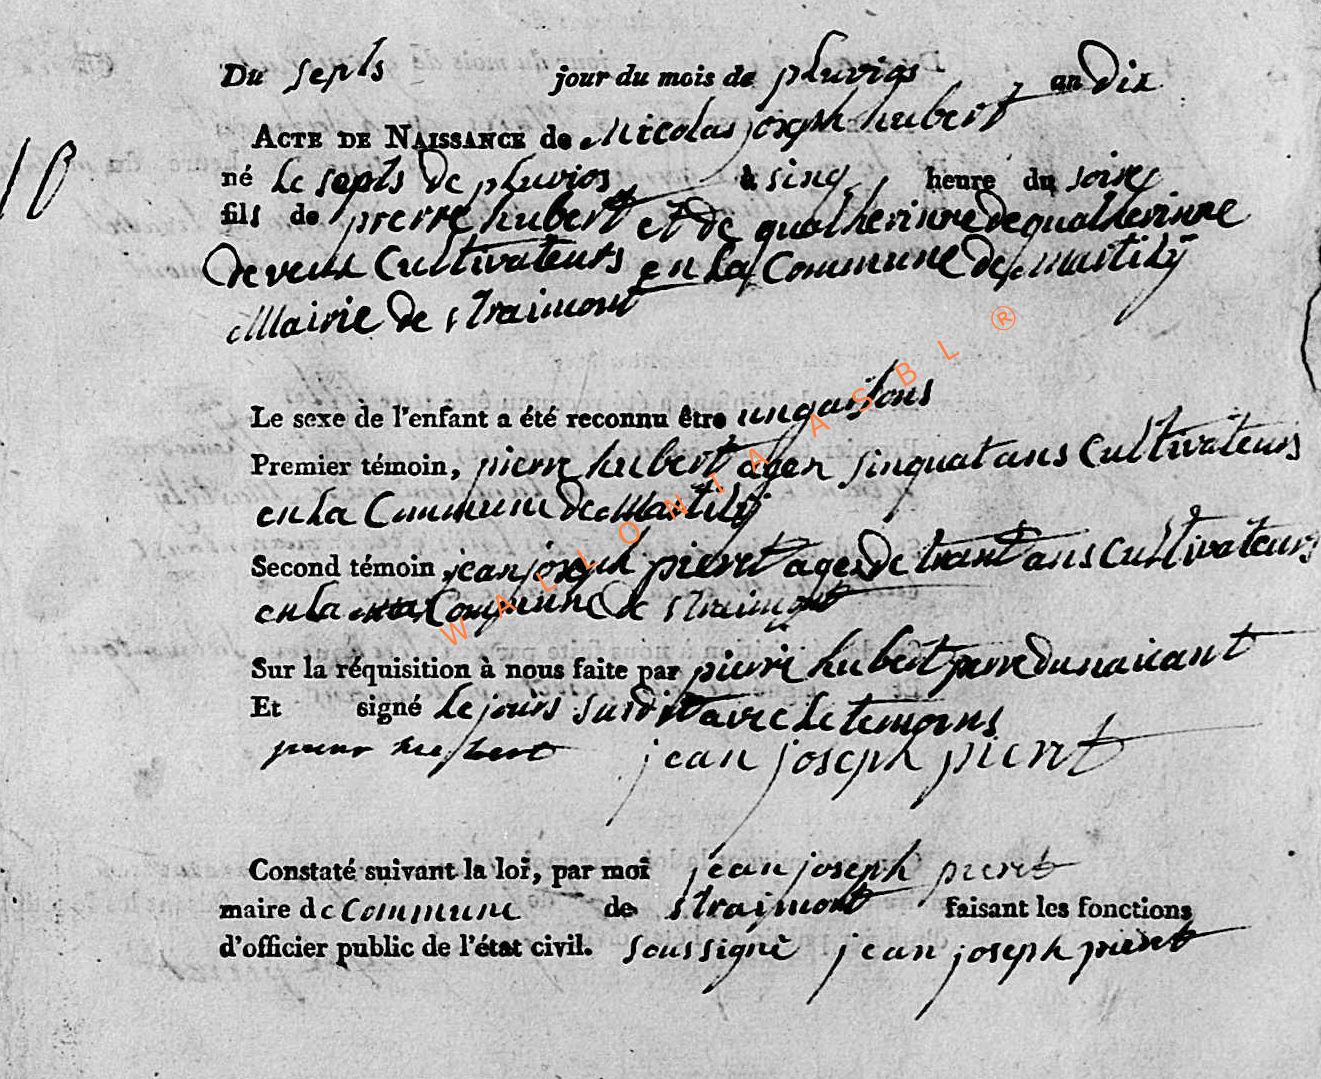 Du septs jour du mois de pluvios an Dix
10
ACTE DE NAISSANCE de Nicolas joseph hubert
né le septs de pluvios à sinq heure du soire
fils de pierre hubert et de quatherinne de quatherinne
Deveux Cultivateurs en la Commune de Mastilÿ
Mairie de straimont
Le sexe de l'enfant a été reconnu être un garsons
Premier témoin, pierre hubert agen sinquat ans Cultivateurs
en la Commune de Mastilÿ
Second témoin jean joseph pieret ages De trant ans Cultivateurs
en la Commune De straimont
Sur la réquisition à nous faite par pierre hubert perre du naicant
Et signé le jours surdit avec le temoins
pierre hubert jean joseph pieret
Constaté suivant la loi, par moi jean joseph pieret
maire de Commune de straimont faisant les fonctions
d'officier public de l'état civil. soussigné jean joseph pieret
WALLONIA ASBL ®